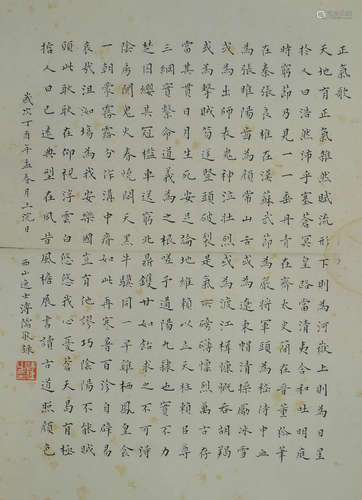 正氣歌
天地有正氣雜然賦流形下則為河嶽上則為日星
於人曰浩然沛乎塞蒼冥皇路當清夷含和吐明庭
時窮節乃見一一垂丹青在齊太史簡在晉董狐筆
在秦張良椎在漢蘇武節為嚴將軍頭為嵇侍中血
為張睢陽齒為顏常山舌或為遼東帽清操厲冰雪
或為出師表鬼神泣壯烈或為渡江楫慷慨吞胡羯
或為擊賊笏逆豎頭破裂是氣所磅礴凜烈萬古存
當其貫日月生死安足論地維賴以立天柱賴以尊
三綱實繫命道義為之根嗟予遘陽九隸也實不力
楚囚纓其冠檻車送窮北鼎鑊甘如飴求之不可得
陰房闃鬼火春院閟天黑牛驥同一皁雞棲鳳皇食
一朝蒙霧露分作溝中瘠如此再寒暑百沴自辟易
哀哉沮洳場為我安樂國豈有他謬巧陰陽不能賊
顧此耿耿在仰視浮雲白悠悠我心憂蒼天曷有極
哲人日已遠典型在夙昔風檐展書讀古道照顏色
歲次丁酉年孟春月上浣日
西山逸士溥儒敬錄